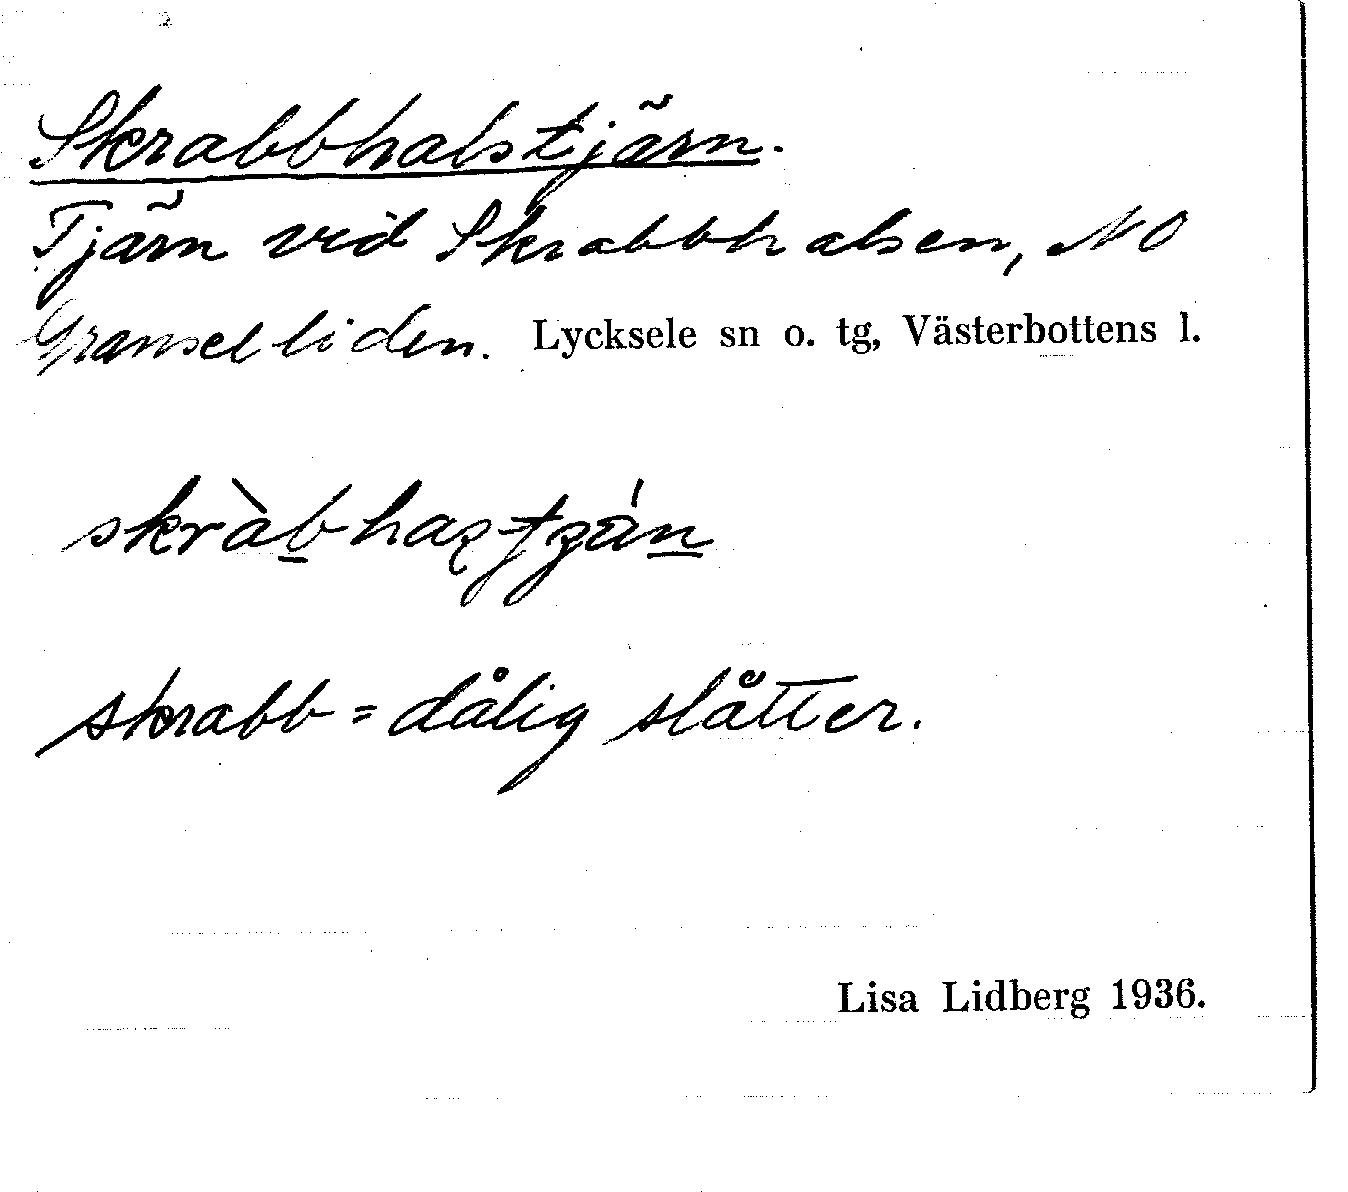 Skrabbhalstjärn.
Tjärn vid Skrabbhalsen, NO
Granselliden. Lycksele sn o. tg, Västerbottens l.
skrabb = dålig slåtter.
Lisa Lidberg 1936.